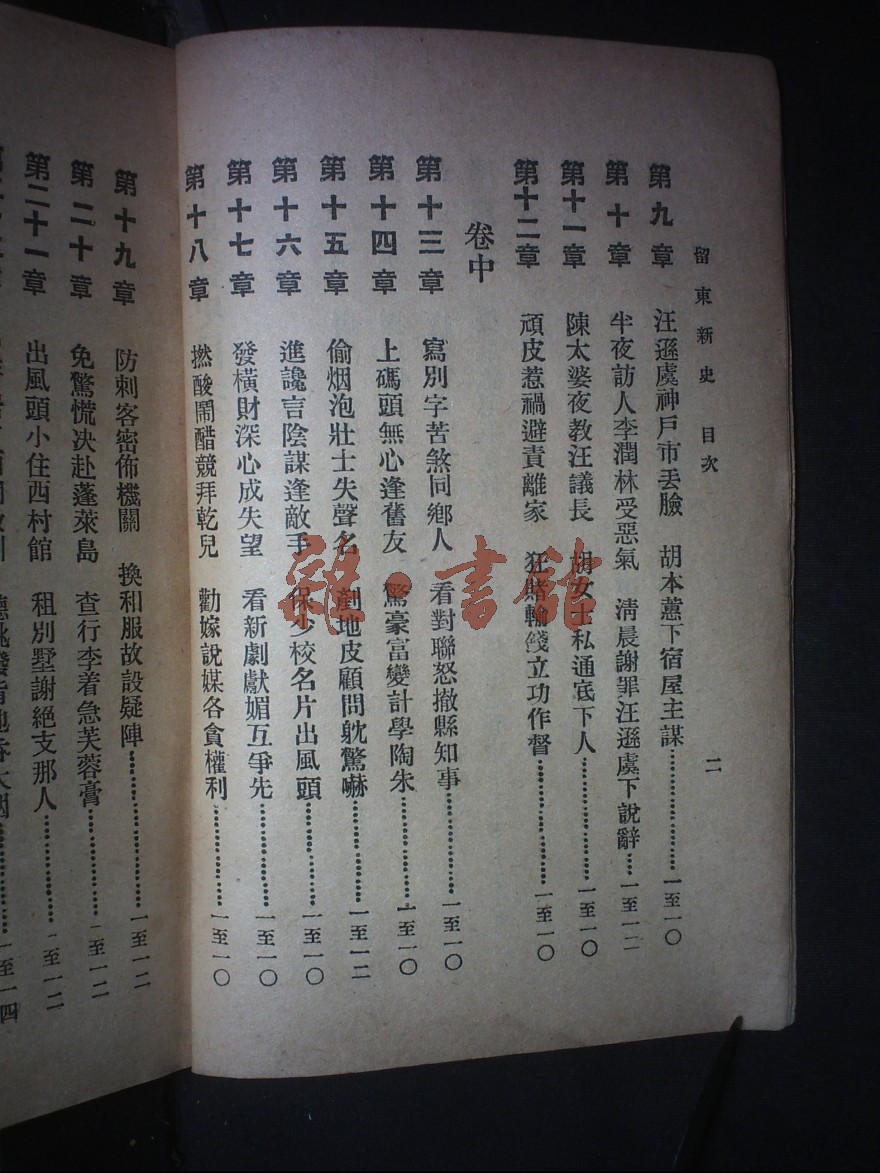 留東新史 目次 二
第九章 汪遜虞神戶市丟臉 胡本蕙下宿屋主謀…………一至一〇
第十章 半夜訪人李潤林受惡氣 清晨謝罪汪遜虞下說辭……一至一二
第十一章 陳太婆夜教汪議長 胡女士私通底下人…………一至一〇
第十二章 頑皮惹禍避責離家 狂賭輸錢立功作督…………一至一〇
卷中
第十三章 寫別字苦煞同鄉人 看對聯怒撤縣知事…………一至一〇
第十四章 上碼頭無心逢舊友 驚豪富變計學陶朱…………一至一〇
第十五章 偷烟泡壯士失聲名 剷地皮顧問躭驚嚇…………一至一二
第十六章 進讒言陰謀逢敵手 保少校名片出風頭…………一至一〇
第十七章 發橫財深心成失望 看新劇獻媚互爭先…………一至一〇
第十八章 撚酸鬧醋競拜乾兒 勸嫁說媒各貪權利…………一至一〇
第十九章 防刺客密佈機關 換和服故設疑陣…………一至一二
第二十章 免驚慌決赴蓬萊島 查行李着急芙蓉膏…………一至一二
第二十一章 出風頭小住西村館 租別墅謝絕支那人…………一至一二
一至一四
雜·書館